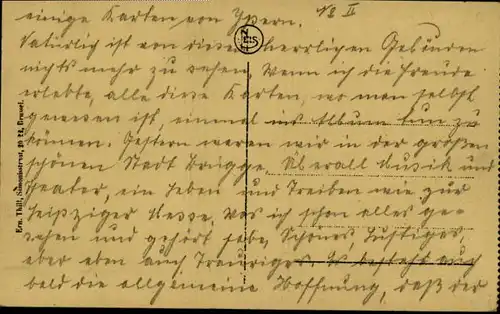 einige Karten von Ypern. No II
Natürlich ist von diesen herrlichen Gebäuden
nichts mehr zu sehen, Wenn ich die Freude
erlebte, alle diese Karten, wo man selbst
gewesen ist, einmal ins Album tun zu
können. Gestern waren wir in der großen
schönen Stadt Brügge. Überall Musik und
Theater, ein Leben und Treiben wie zur
Leipziger Messe, Was ich schon alles ge-
sehen und gehört habe, Schönes, Lustiges,
aber eben auch Trauriges. Es besteht auch
bald die allgemeine Hoffnung, daß der
NELS
Ern. Thill,
Brussel.